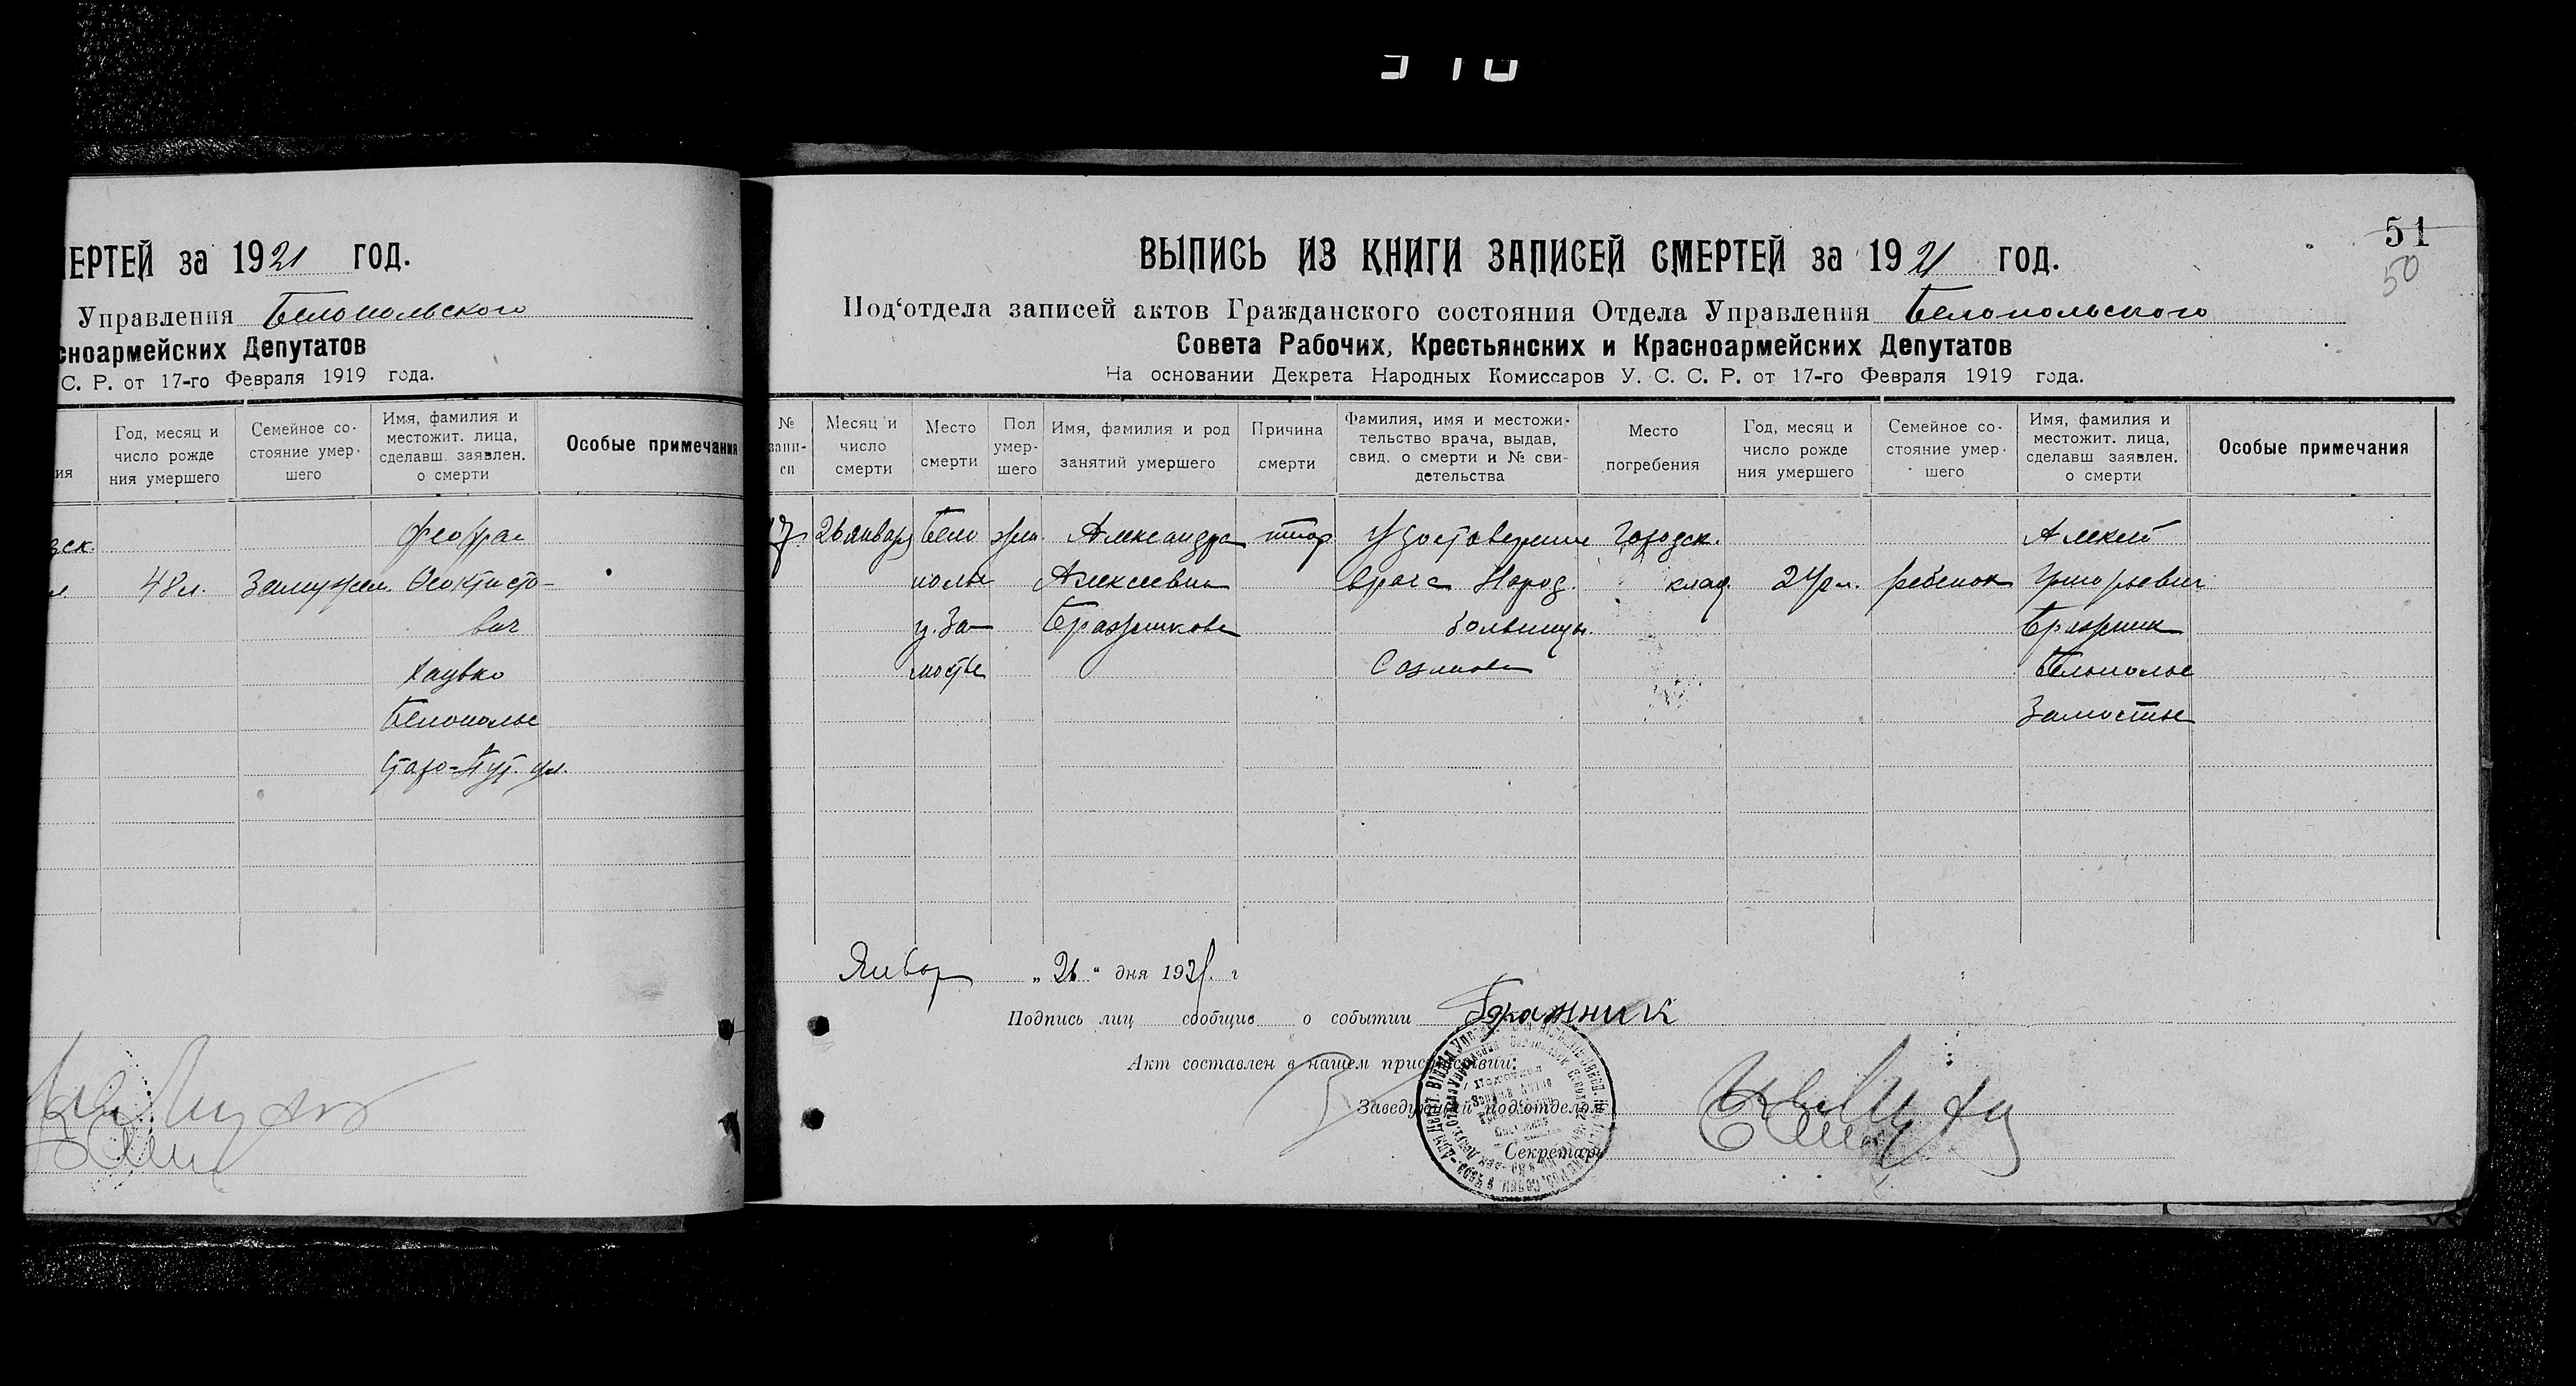 МЕРТЕЙ за 1921 год.
Управления Белопольского
сноармейских Депутатов
С. Р. от 17-го Февраля 1919 года.
ия
Год, месяц и число рожде ния умершего
Семейное со- стояние умер- шего
Имя, фамилия и местожит. лица, сделавш. заявлен. о смерти
Особые примечания
48 л. Замужем. Феоктисто-
вич
Белополье
Старо-Пут. ул.
51
50
ВЫПИСЬ ИЗ КНИГИ ЗАПИСЕЙ СМЕРТЕЙ за 1921 год.
Под‘отдела записей актов Гражданского состояния Отдела Управления Белопольского
Совета Рабочих, Крестьянских и Красноармейских Депутатов
На основании Декрета Народных Комиссаров У. С. С. Р. от 17-го Февраля 1919 года.
№ запи- си
Месяц и число смерти
Место смерти
Пол умер- шего
Имя, фамилия и род занятий умершего
Причина смерти
Фамилия, имя и местожи- тельство врача, выдав, свид. о смерти и № сви- детельства
Место погребения
Год, месяц и число рожде ния умершего
Семейное со- стояние умер- шего
Имя, фамилия и местожит. лица, сделавш заявлен. о смерти
Особые примечания
17. 26 январ Бело жен. Александра Удостоверение Городск. Алексей
полье Алексеевна врача Народ. клад. ребенок Григорьевич
у. За- Бражникова больницы. Бражник
мостье Белополье
Замостье
Январ „ 26 “ дня 1921. г
Подпись лиц сообщив о событии Бражник
Акт составлен в нашем присутствии:
Заведующий под‘отделом
Секретарь